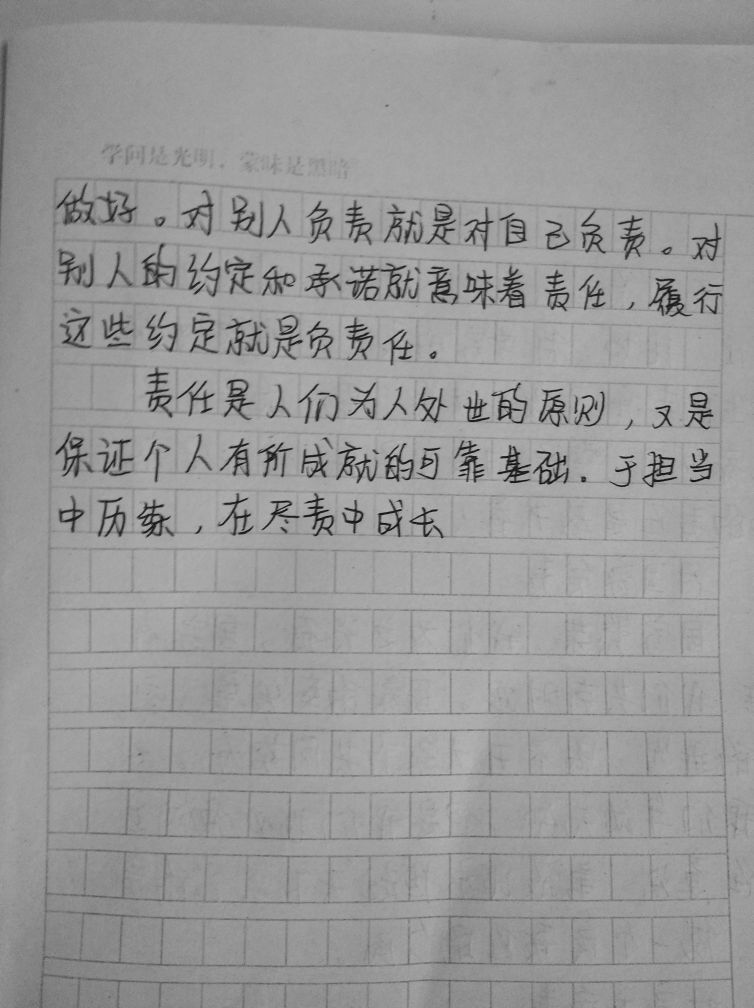 学问是光明，蒙昧是黑暗
做好。对别人负责就是对自己负责。对
别人的约定和承诺就意味着责任，履行
这些约定就是负责任。
责任是人们为人处世的原则，又是
保证个人有所成就的可靠基础。于担当
中历练，在尽责中成长